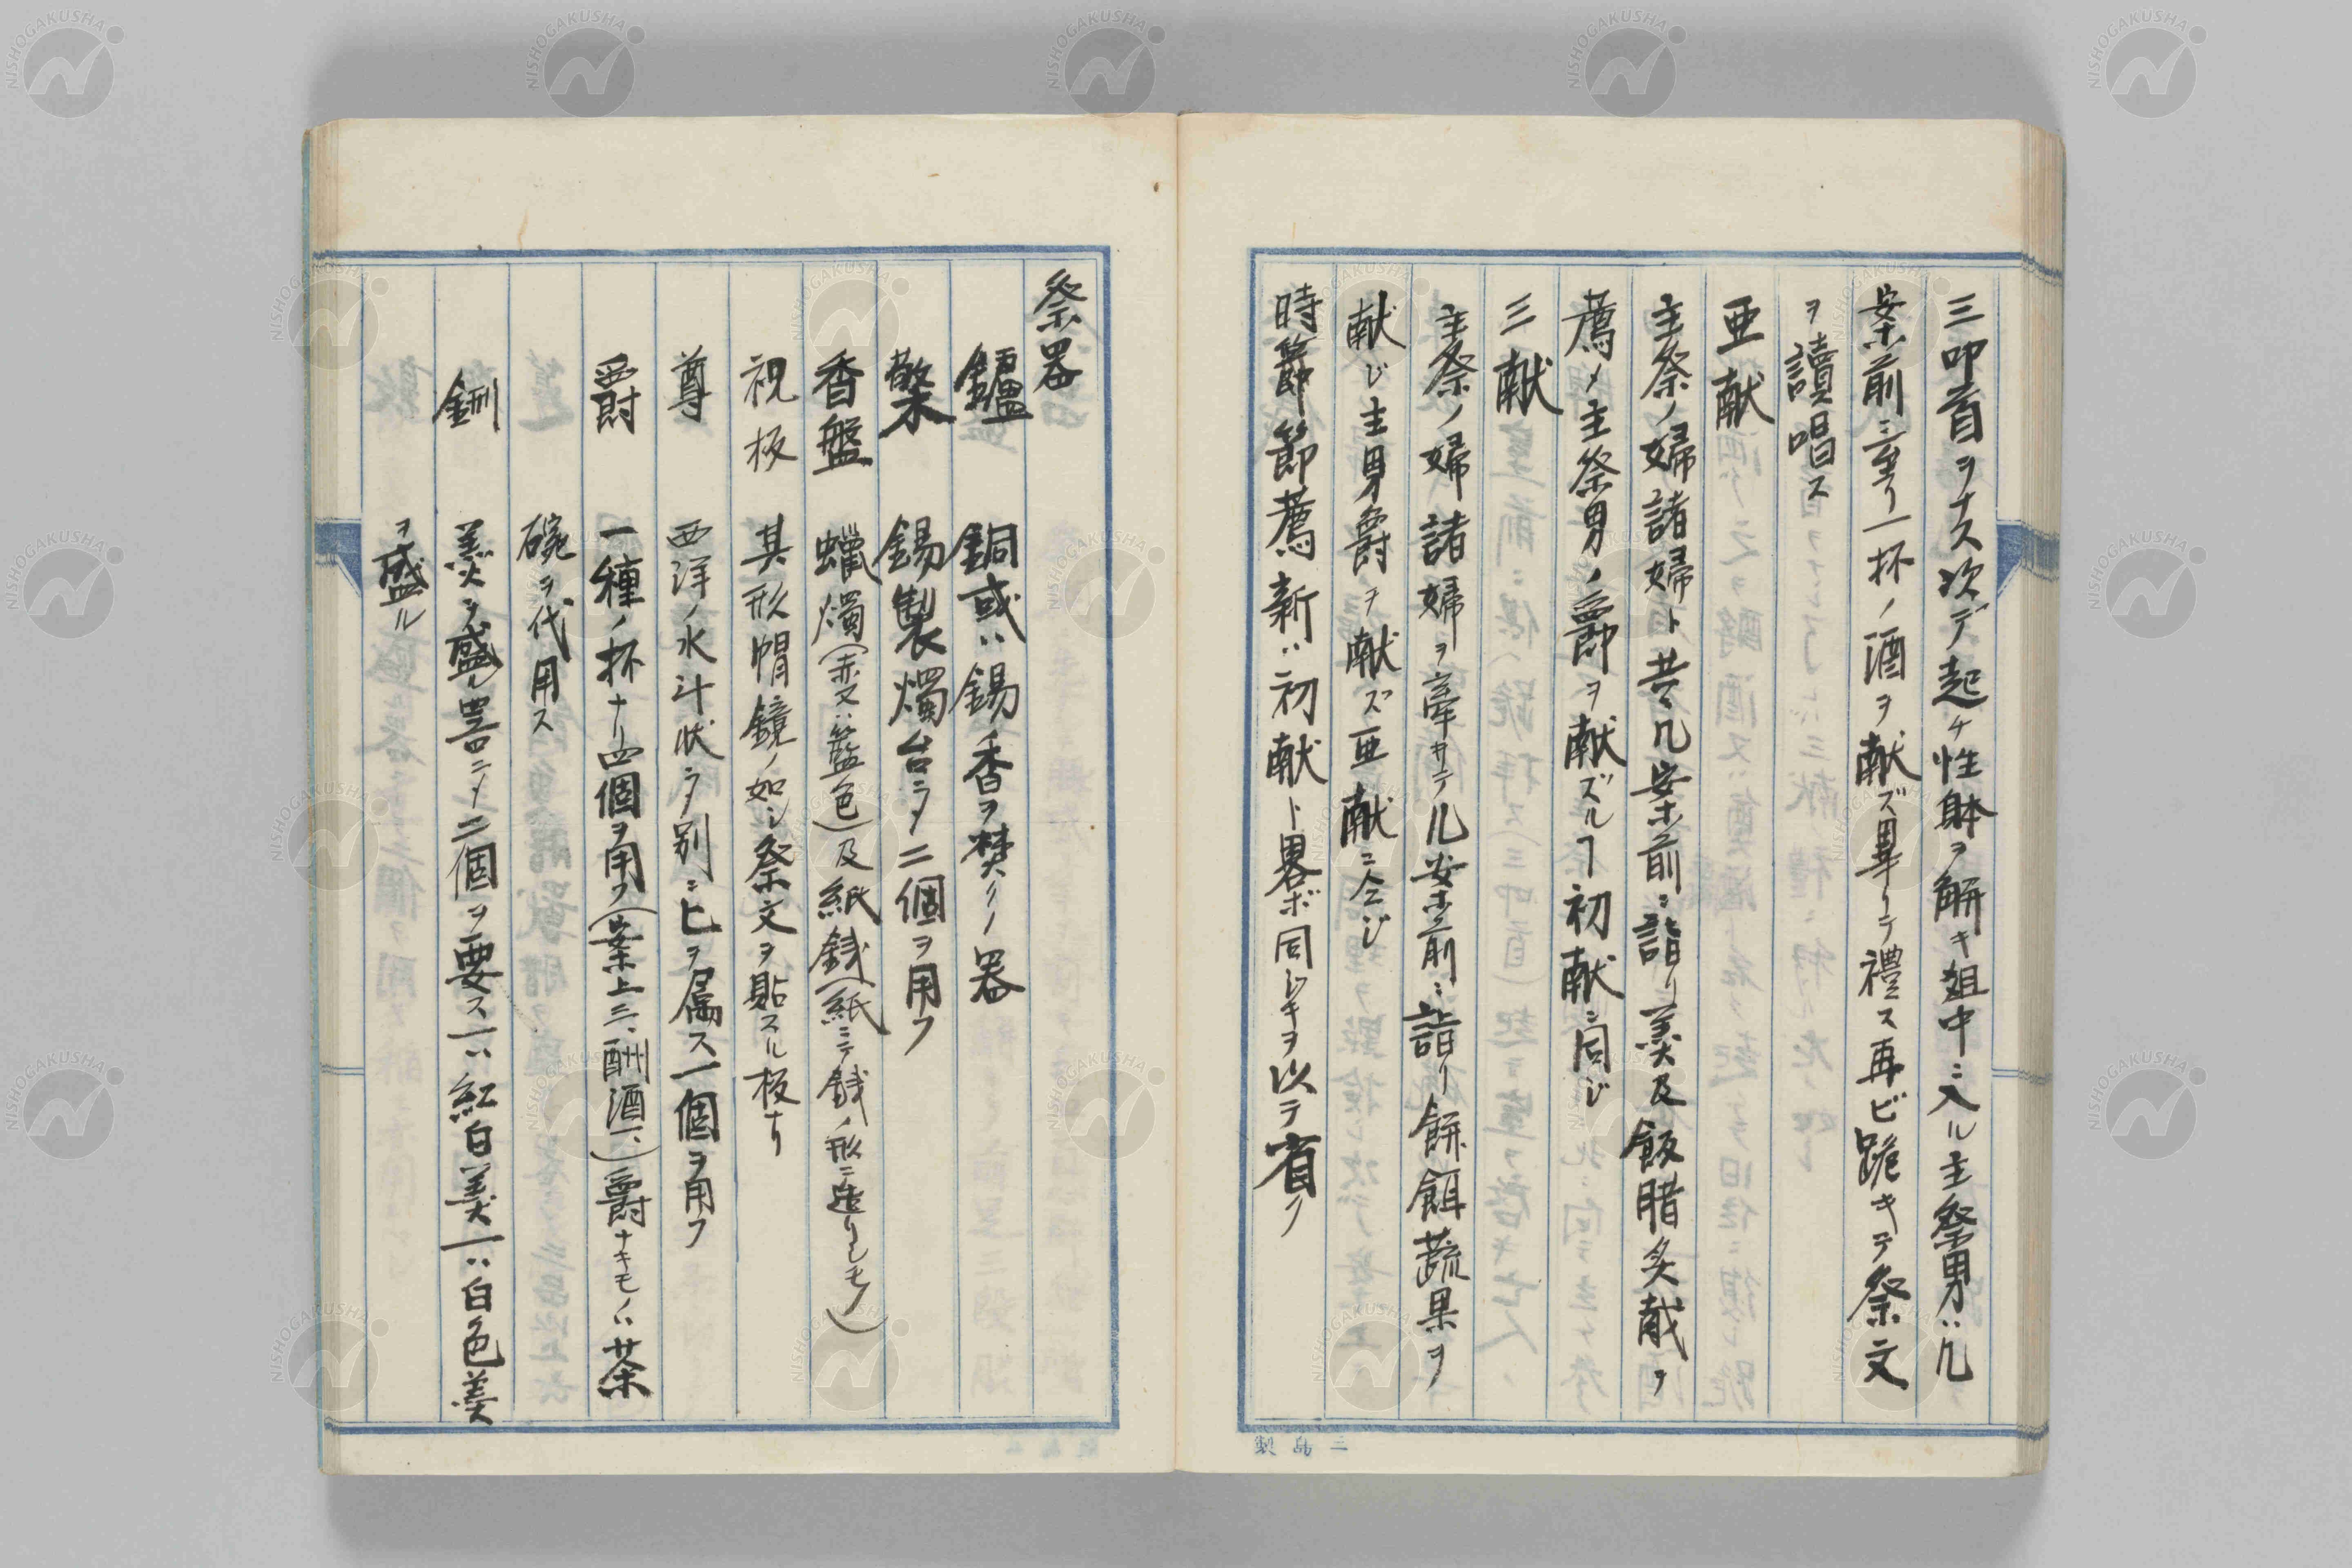 三叩首ヲナス次デ起チ牲躰ヲ解キ俎中ニ入ル主祭男ハ几
案前ニ至リ一杯ノ酒ヲ献ズ畢リテ禮ス再ビ跪キテ祭文
ヲ讀唱ス
亜献
主祭ノ婦諸婦ト共ニ几案前ニ詣リ羹及飯腊炙胾ヲ
薦メ主祭男ノ爵ヲ献ズルヿ初献ニ同ジ
三献
主祭ノ婦諸婦ヲ牽ヰテ几案前ニ詣リ餅餌蔬果ヲ
献ジ主男爵ヲ献ズ亜献ニ仝ジ
時節節薦新ハ初献ト畧ボ同ジキヲ以テ省ク
祭器
鑪 銅或ハ錫香ヲ焚クノ器
檠 錫製燭台ニシテ二個ヲ用フ
香盤 蠟燭(赤又ハ籃色)及紙銭(紙ニテ銭ノ形ニ造リシモノ)
祝板 其形帽鏡ノ如シ祭文ヲ貼スル板ナリ
尊 西洋ノ水斗状ニシテ別ニ匕ヲ属ス一個ヲ用フ
爵 一種ノ杯ナリ四個ヲ用フ(案上三、酬酒一、)爵ナキモノハ茶
碗ヲ代用ス
鉶 羹ヲ盛ル器ニシテ二個ヲ要ス一ハ紅白羹一ハ白色羹
ヲ盛ル
製島三
NISHOGAKUSHA